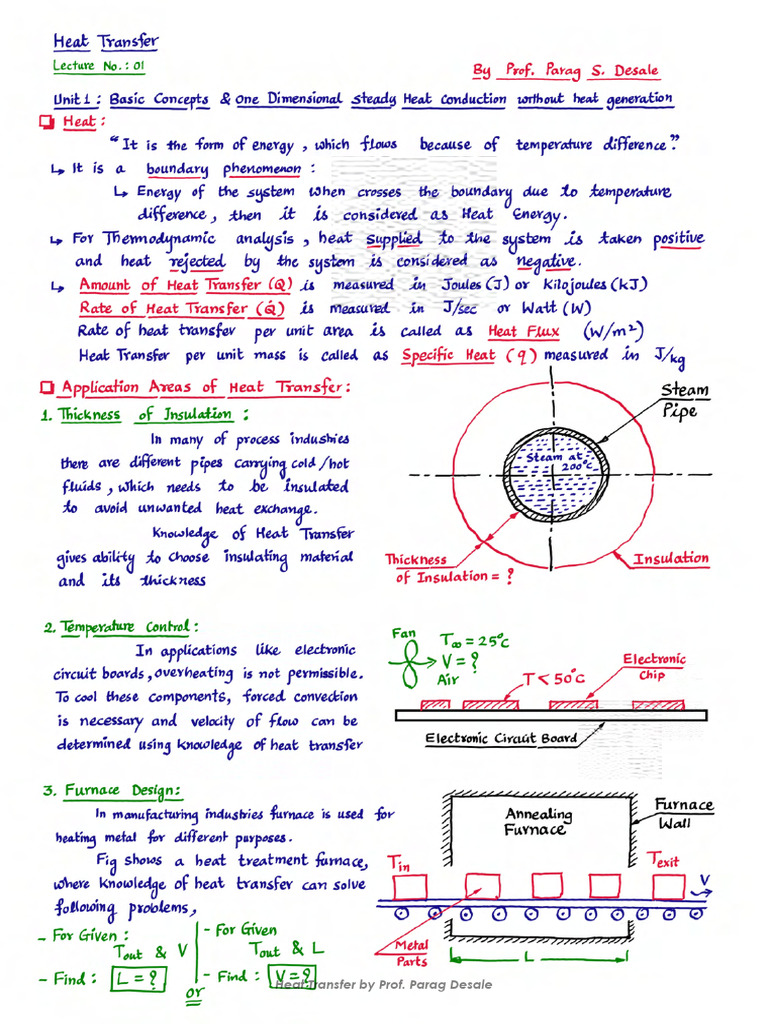 Heat Transfer
Lecture No.: 01
By Prof. Parag S. Desale
Unit 1: Basic Concepts & One Dimensional Steady Heat Conduction without heat generation
Heat:
"It is the form of energy, which flows because of temperature difference".
↳ It is a boundary phenomenon:
↳ Energy of the system when crosses the boundary due to temperature
difference, then it is considered as Heat Energy.
↳ For Thermodynamic analysis, heat supplied to the system is taken positive
and heat rejected by the system is considered as negative.
↳ Amount of Heat Transfer (Q) is measured in Joules (J) or Kilojoules (kJ)
Rate of Heat Transfer (Q̇) is measured in J/sec or Watt (W)
Rate of heat transfer per unit area is called as Heat Flux (W/m²)
Heat Transfer per unit mass is called as Specific Heat (q) measured in J/kg
Application Areas of Heat Transfer:
1. Thickness of Insulation:
In many of process industries
there are different pipes carrying cold/hot
fluids, which needs to be insulated
to avoid unwanted heat exchange.
Knowledge of Heat Transfer
gives ability to choose insulating material
and its thickness
Steam
Pipe
Steam at
200°C
Thickness
of Insulation = ?
Insulation
2. Temperature Control:
In applications like electronic
circuit boards, overheating is not permissible.
To cool these components, forced convection
is necessary and velocity of flow can be
determined using knowledge of heat transfer
Fan
T∞ = 25°C
V = ?
Air
T < 50°C
Electronic
Chip
Electronic Circuit Board
3. Furnace Design:
In manufacturing industries furnace is used for
heating metal for different purposes.
Fig shows a heat treatment furnace,
where knowledge of heat transfer can solve
following problems,
- For Given:
Tout & V
- Find: L = ?
or
- For Given
Tout & L
- Find: V = ?
Annealing
Furnace
Furnace
Wall
Tin
Texit
V
Metal
Parts
L
Heat Transfer by Prof. Parag Desale